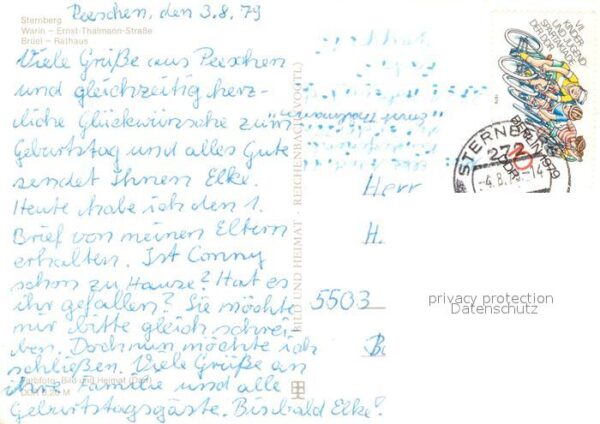 Peeschen, den 3.8.79
Sternberg
Warin – Ernst-Thälmann-Straße
Brüel – Rathaus
Viele Grüße aus Peeschen
und gleichzeitig herz-
liche Glückwünsche zum
Geburtstag und alles Gute
sendet Ihnen Elke.
Heute habe ich den 1.
Brief von meinen Eltern
erhalten. Ist Conny
schon zu Hause? Hat es
ihr gefallen? Sie möchte
mir bitte gleich schrei-
ben. Doch nun möchte ich
schließen. Viele Grüße an
ihre Familie und alle
Geburtstagsgäste. Bis bald Elke!
Farbfoto: Bild und Heimat
BILD UND HEIMAT · REICHENBACH (VOGTL)
"Ernst Thälmann"
VII.
KINDER-
UND JUGEND
SPARTAKIADE
DER DDR
STERNBERG
272
-4.8.79-14
Herr
H.
5503
B.
privacy protection
Datenschutz